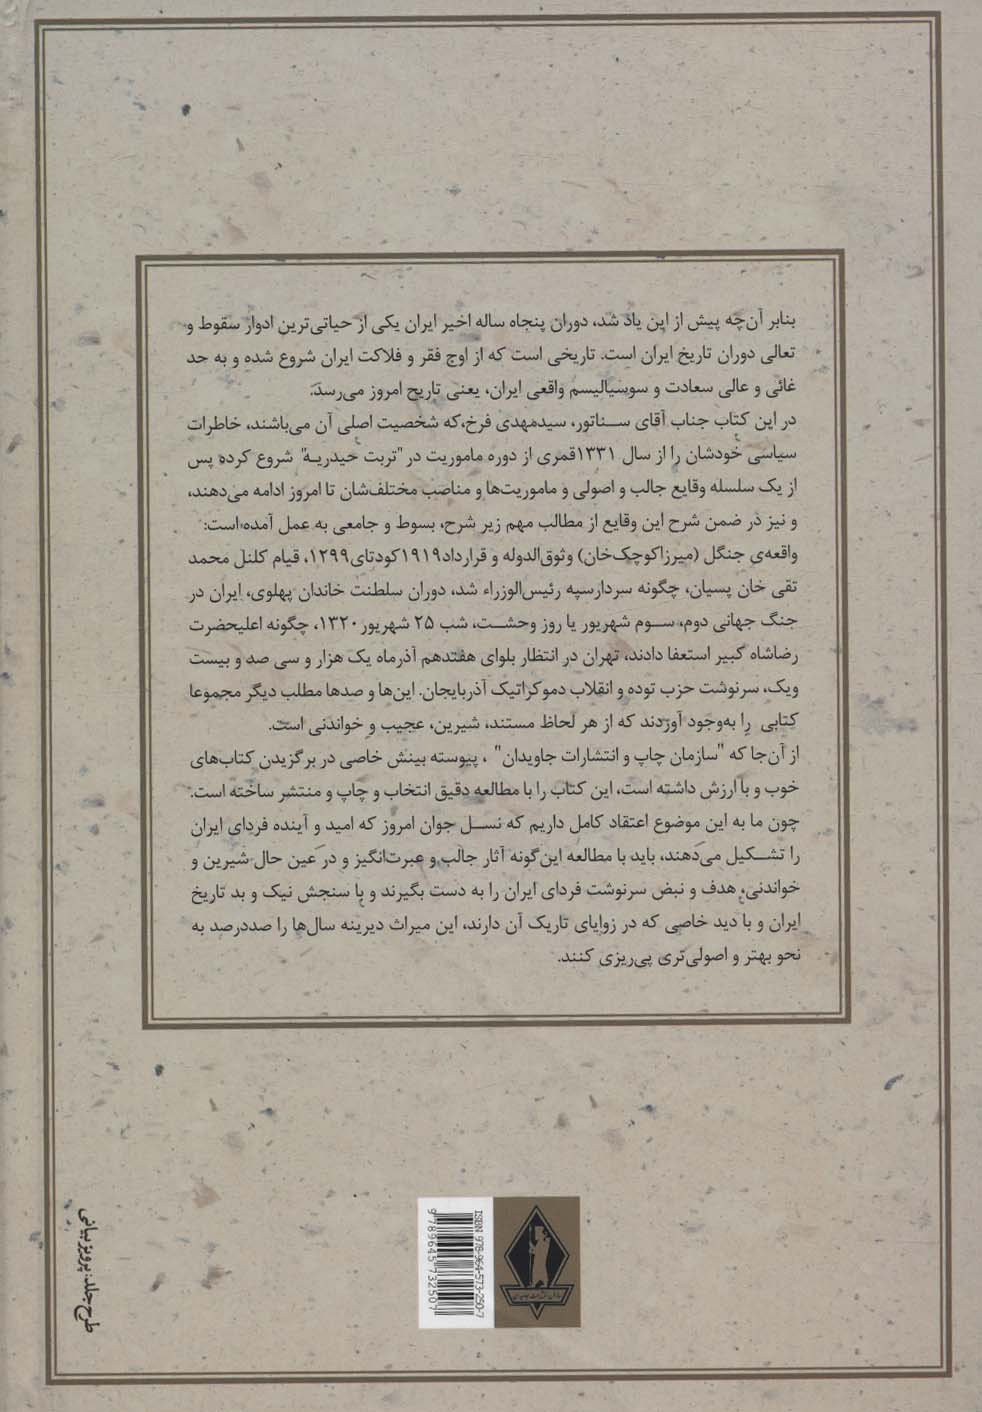 بنابر آن‌چه پیش از این یاد شد، دوران پنجاه ساله اخیر ایران یکی از حیاتی‌ترین ادوار سقوط و
تعالی دوران تاریخ ایران است. تاریخی است که از اوج فقر و فلاکت ایران شروع شده و به حد
غائی و عالی سعادت و سوسیالیسم واقعی ایران، یعنی تاریخ امروز می‌رسد.
در این کتاب جناب آقای سناتور، سیدمهدی فرخ،که شخصیت اصلی آن می‌باشند، خاطرات
سیاسی خودشان را از سال ۱۳۳۱قمری از دوره ماموریت در "تربت حیدریه" شروع کرده پس
از یک سلسله وقایع جالب و اصولی و ماموریت‌ها و مناصب مختلف‌شان تا امروز ادامه می‌دهند،
و نیز در ضمن شرح این وقایع از مطالب مهم زیر شرح، بسوط و جامعی به عمل آمده است:
واقعه‌ی جنگل (میرزاکوچک‌خان) وثوق‌الدوله و قرارداد۱۹۱۹کودتای۱۲۹۹، قیام کلنل محمد
تقی خان پسیان، چگونه سردارسپه رئیس‌الوزراء شد، دوران سلطنت خاندان پهلوی، ایران در
جنگ جهانی دوم، سوم شهریور یا روز وحشت، شب ۲۵ شهریور۱۳۲۰، چگونه اعلیحضرت
رضاشاه کبیر استعفا دادند، تهران در انتظار بلوای هفتدهم آذرماه یک هزار و سی صد و بیست
ویک، سرنوشت حزب توده و انقلاب دموکراتیک آذربایجان. این‌ها و صدها مطلب دیگر مجموعا
کتابی را به‌وجود آوردند که از هر لحاظ مستند، شیرین، عجیب و خواندنی است.
از آن‌جا که "سازمان چاپ و انتشارات جاویدان" ، پیوسته بینش خاصی در برگزیدن کتاب‌های
خوب و با ارزش داشته است، این کتاب را با مطالعه دقیق انتخاب و چاپ و منتشر ساخته است.
چون ما به این موضوع اعتقاد کامل داریم که نسل جوان امروز که امید و آینده فردای ایران
را تشکیل می‌دهند، باید با مطالعه این‌گونه آثار جالب و عبرت‌انگیز و در عین حال شیرین و
خواندنی، هدف و نبض سرنوشت فردای ایران را به دست بگیرند و با سنجش نیک و بد تاریخ
ایران و با دید خاصی که در زوایای تاریک آن دارند، این میراث دیرینه سال‌ها را صددرصد به
نحو بهتر و اصولی‌تری پی‌ریزی کنند.
ISBN 978-964-573-250-7
9 789645 732507
طرح جلد: پرویز بیانی